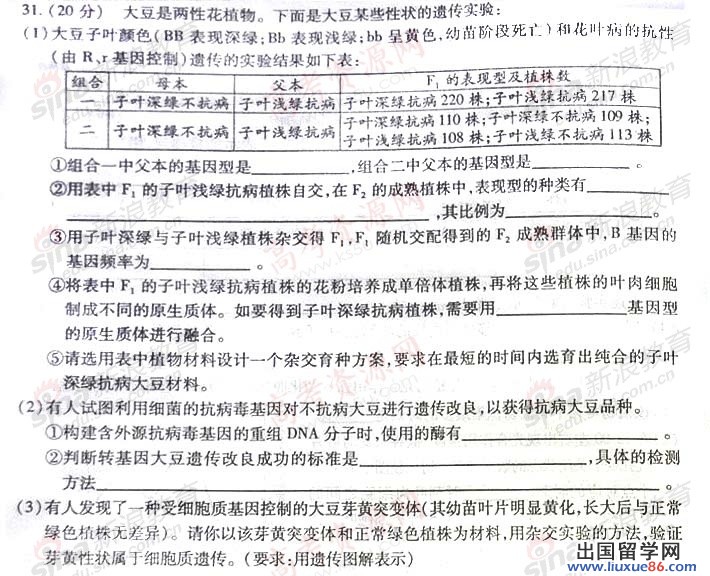 31.(20分) 大豆是两性花植物。下面是大豆某些性状的遗传实验:
(1)大豆子叶颜色(BB表现深绿;Bb表现浅绿;bb呈黄色,幼苗阶段死亡)和花叶病的抗性
(由R、r基因控制)遗传的实验结果如下表:
组合 母本 父本 F1的表现型及植株数
一 子叶深绿不抗病 子叶浅绿抗病 子叶深绿抗病220株;子叶浅绿抗病217株
二 子叶深绿不抗病 子叶浅绿抗病 子叶深绿抗病110株;子叶深绿不抗病109株;
子叶浅绿抗病108株;子叶浅绿不抗病113株
①组合一中父本的基因型是____________,组合二中父本的基因型是____________。
②用表中F1的子叶浅绿抗病植株自交,在F2的成熟植株中,表现型的种类有________
____________________________________,其比例为______________。
③用子叶深绿与子叶浅绿植株杂交得F1,F1随机交配得到的F2成熟群体中,B基因的
基因频率为__________。
④将表中F1的子叶浅绿抗病植株的花粉培养成单倍体植株,再将这些植株的叶肉细胞
制成不同的原生质体。如要得到子叶深绿抗病植株,需要用____________基因型
的原生质体进行融合。
⑤请选用表中植物材料设计一个杂交育种方案,要求在最短的时间内选育出纯合的子叶
深绿抗病大豆材料。
(2)有人试图利用细菌的抗病毒基因对不抗病大豆进行遗传改良,以获得抗病大豆品种。
①构建含外源抗病毒基因的重组DNA分子时,使用的酶有____________________。
②判断转基因大豆遗传改良成功的标准是______________________,具体的检测
方法____________________________________________________________。
(3)有人发现了一种受细胞质基因控制的大豆芽黄突变体(其幼苗叶片明显黄化,长大后与正常
绿色植株无差异)。请你以该芽黄突变体和正常绿色植株为材料,用杂交实验的方法,验证
芽黄性状属于细胞质遗传。(要求:用遗传图解表示)
出国留学网
www.liuxue86.com